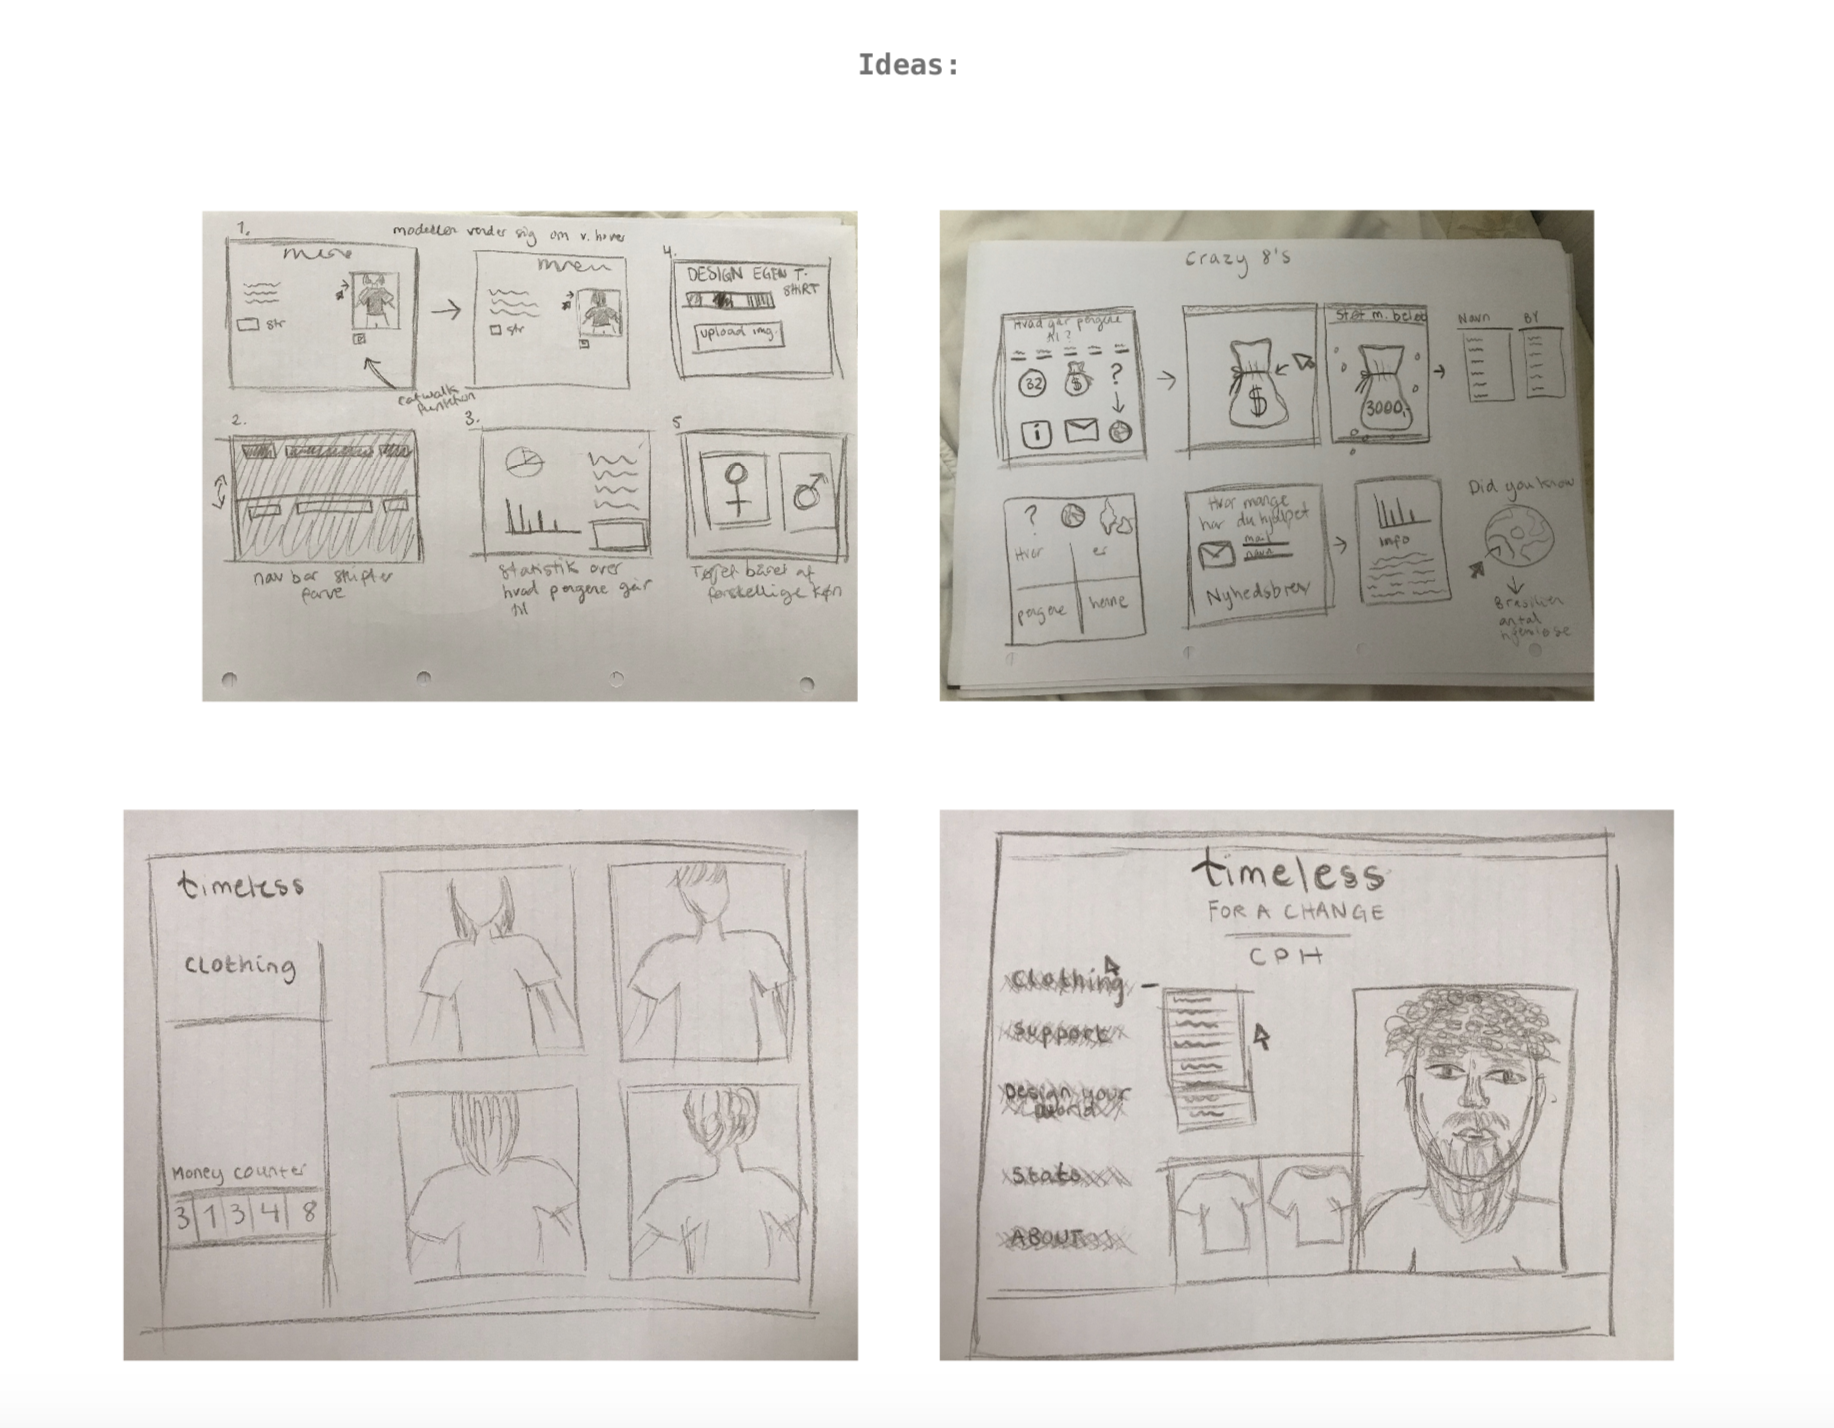 Ideas:
1.
modellen vender sig om v. hover
str
str
catwalk
funktion
4.
DESIGN EGEN T-
SHIRT
upload img.
2.
nav bar skifter
farve
3.
statistik over
hvad pengene går
til
5
Tøjet båret af
forskellige køn
Crazy 8's
Hvad går pengene
til?
32
$
?
i
$
Støt m. beløb
3000,-
Navn
BY
?
Hvor
er
pengene
henne
Hvor mange
har du hjulpet
mail
navn
Nyhedsbrev
info
Did you know
Brasilien
antal
hjemløse
timeless
Clothing
Money counter
3 1 3 4 8
timeless
FOR A CHANGE
CPH
Clothing
Support
Design your
Stats
ABOUT